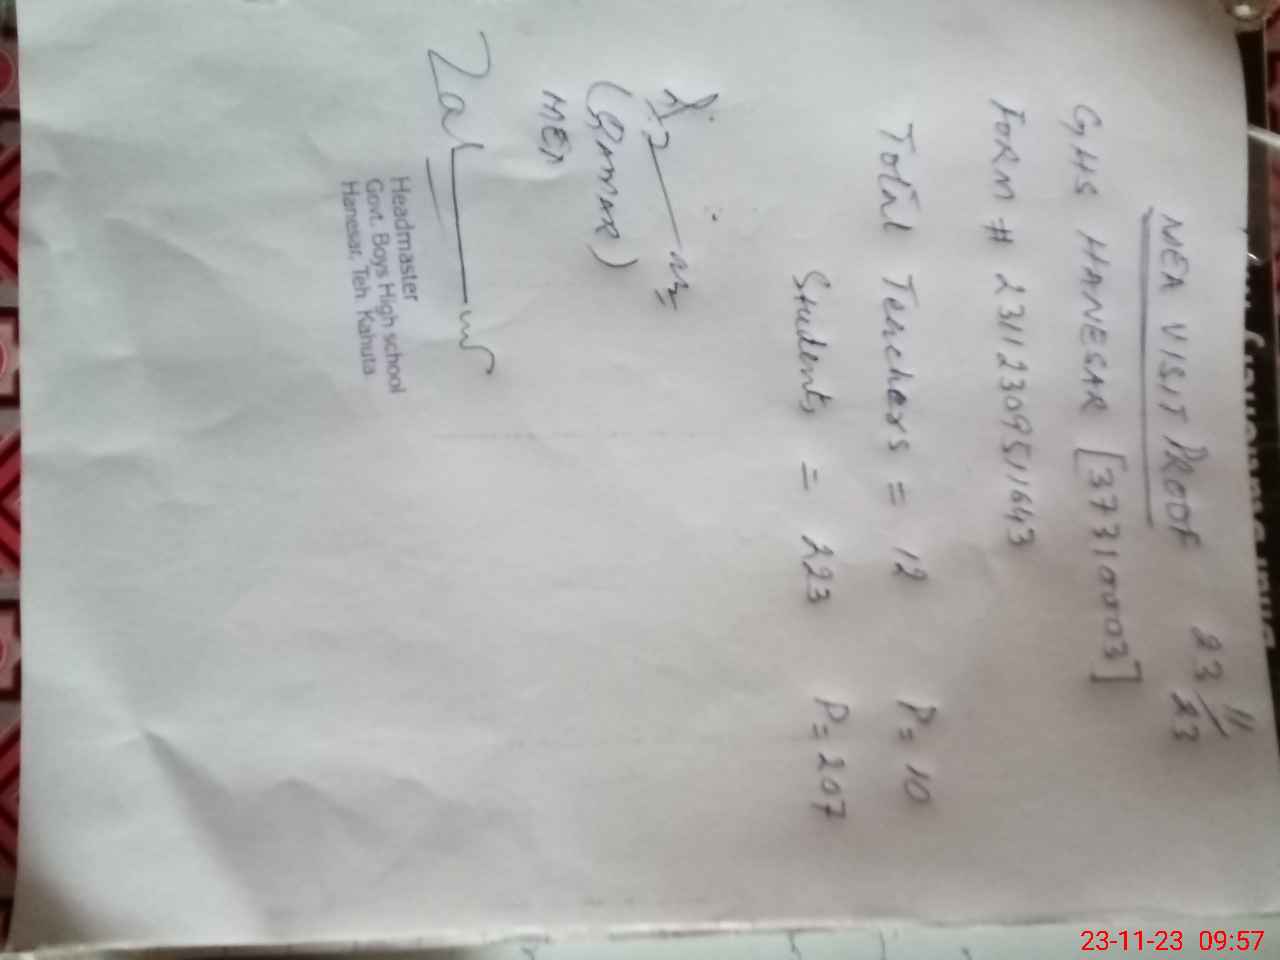 MEA VISIT PROOF 23/11/23
GHS HANESAR [37310003]
FORM # 23112309511643
Total Teachers = 12 P= 10
Students = 223 P= 207
(QAMAR)
MEA
Headmaster
Govt. Boys High school
Hanesar, Teh. Kahuta
23-11-23 09:57